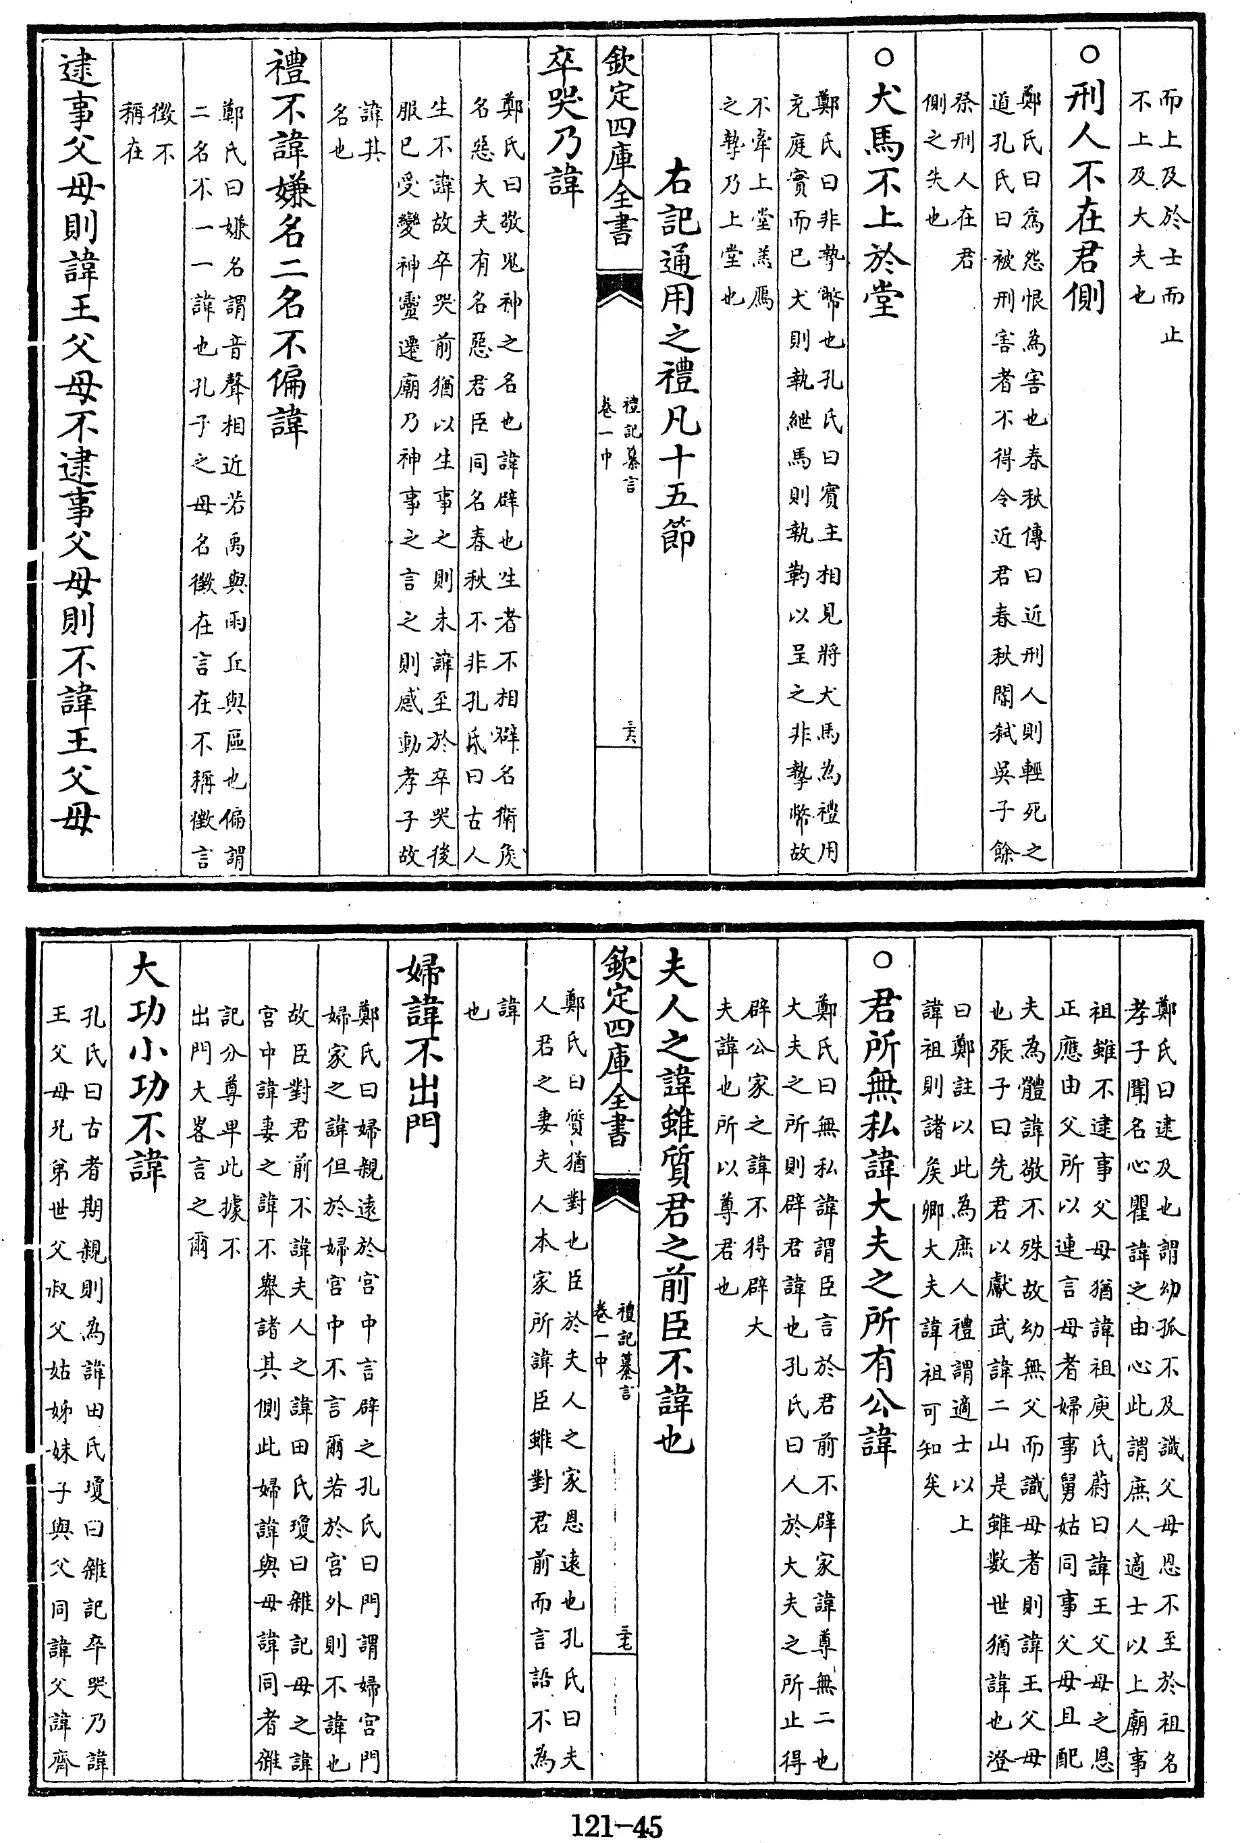 而上及於士而止
不上及大夫也
○刑人不在君側
鄭氏曰為怨恨為害也春秋傳曰近刑人則輕死之
道孔氏曰被刑害者不得令近君春秋閽弑吳子餘
祭刑人在君
側之失也
○犬馬不上於堂
鄭氏曰非摯幣也孔氏曰賓主相見將犬馬為禮用
充庭實而已犬則執紲馬則執靮以呈之非摯幣故
不牽上堂羔鴈
之摯乃上堂也
右記通用之禮凡十五節
欽定四庫全書
禮記纂言
卷一中
三六
卒哭乃諱
鄭氏曰敬鬼神之名也諱辟也生者不相辟名衛侯
名惡大夫有名惡君臣同名春秋不非孔氏曰古人
生不諱故卒哭前猶以生事之則未諱至於卒哭後
服已受變神靈遷廟乃神事之言之則感動孝子故
諱其
名也
禮不諱嫌名二名不偏諱
鄭氏曰嫌名謂音聲相近若禹與雨丘與區也偏謂
二名不一一諱也孔子之母名徵在言在不稱徵言
徵不
稱在
逮事父母則諱王父母不逮事父母則不諱王父母
鄭氏曰逮及也謂幼孤不及識父母恩不至於祖名
孝子聞名心瞿諱之由心此謂庶人適士以上廟事
祖雖不逮事父母猶諱祖庾氏蔚曰諱王父母之恩
正應由父所以連言母者婦事舅姑同事父母且配
夫為體諱敬不殊故幼無父而識母者則諱王父母
也張子曰先君以獻武諱二山是雖數世猶諱也澄
曰鄭註以此為庶人禮謂適士以上
諱祖則諸侯卿大夫諱祖可知矣
○君所無私諱大夫之所有公諱
鄭氏曰無私諱謂臣言於君前不辟家諱尊無二也
大夫之所則辟君諱也孔氏曰人於大夫之所止得
辟公家之諱不得辟大
夫諱也所以尊君也
夫人之諱雖質君之前臣不諱也
欽定四庫全書
禮記纂言
卷一中
三七
鄭氏曰質猶對也臣於夫人之家恩遠也孔氏曰夫
人君之妻夫人本家所諱臣雖對君前而言語不為
諱
也
婦諱不出門
鄭氏曰婦親遠於宫中言辟之孔氏曰門謂婦宫門
婦家之諱但於婦宫中不言爾若於宫外則不諱也
故臣對君前不諱夫人之諱田氏瓊曰雜記母之諱
宫中諱妻之諱不舉諸其側此婦諱與母諱同者雜
記分尊卑此據不
出門大畧言之爾
大功小功不諱
孔氏曰古者期親則為諱田氏瓊曰雜記卒哭乃諱
王父母兄弟世父叔父姑姊妹子與父同諱父諱齊
121-45